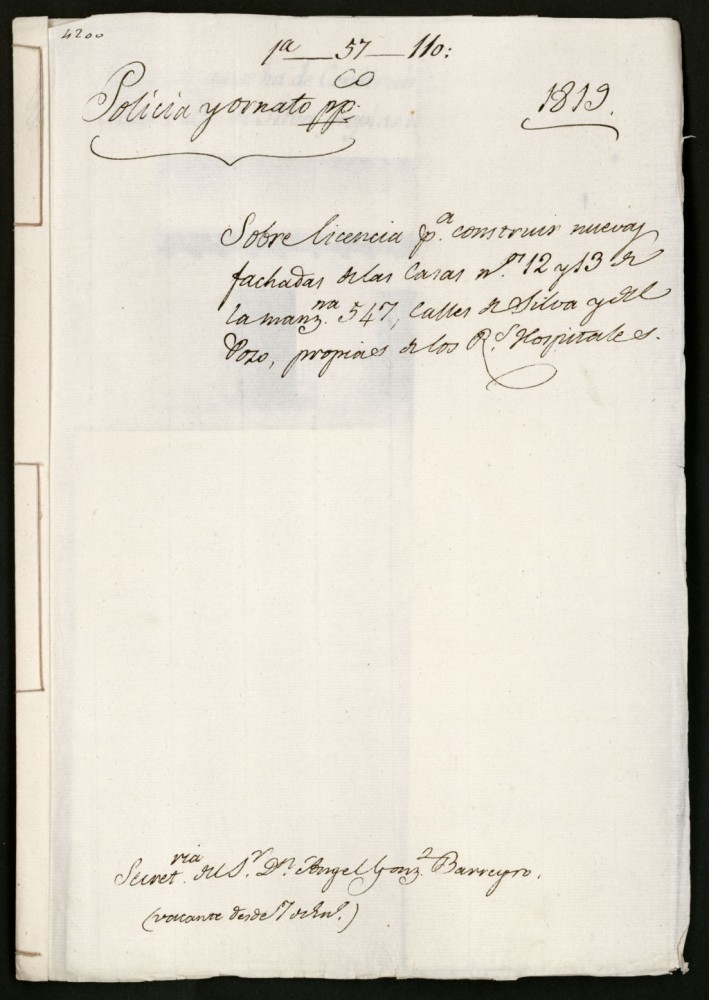 4200
1ª — 57 — 110:
Policia y ornato pp.co
1819.
Sobre licencia p.a construir nuevas
fachadas de las Casas n.os 12 y 13 de
la manz.na 547, Calles de Silva y del
Pozo, propias de los R.s Hospitales.
Secret.ria del S.r D.n Angel Gonz.z Barreyro.
(vacante desde 17 de En.o)